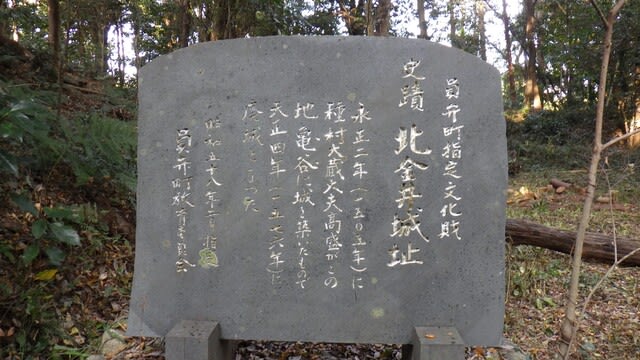 員弁町指定文化財
史蹟 北金井城址
永正二年(一五〇五年)に
種村大蔵大夫高盛がこの
地亀谷に城を築いたもので
天正四年(一五七六年)に
廃城となった
昭和五十八年
員弁町教育委員会